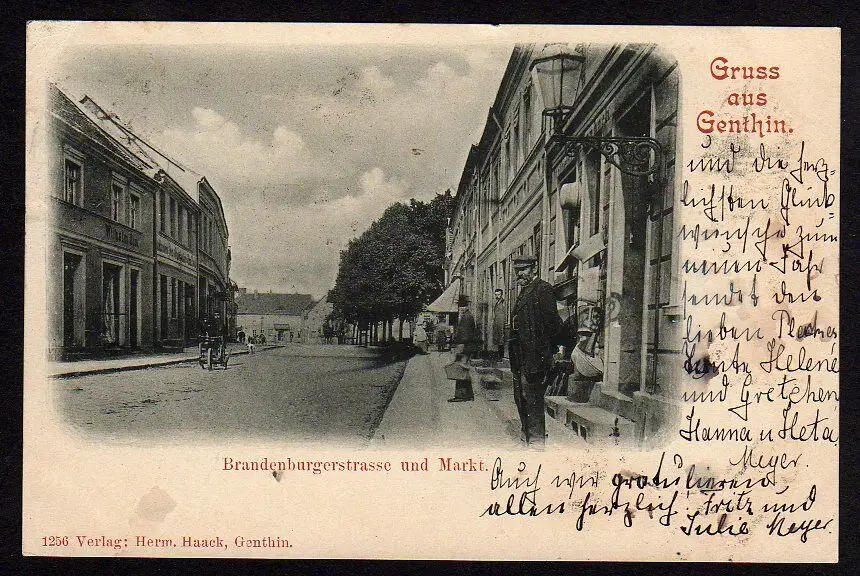 Gruss
aus
Genthin.
und die herz-
lichsten Glück-
wünsche zum
neuen Jahr
sendet den
lieben
Tante Helene
und Gretchen
Hanna u Heta
Meyer.
Brandenburgerstrasse und Markt.
Auch wir gratulieren
allen herzlich! Fritz und
Julie Meyer.
1256 Verlag: Herm. Haack, Genthin.